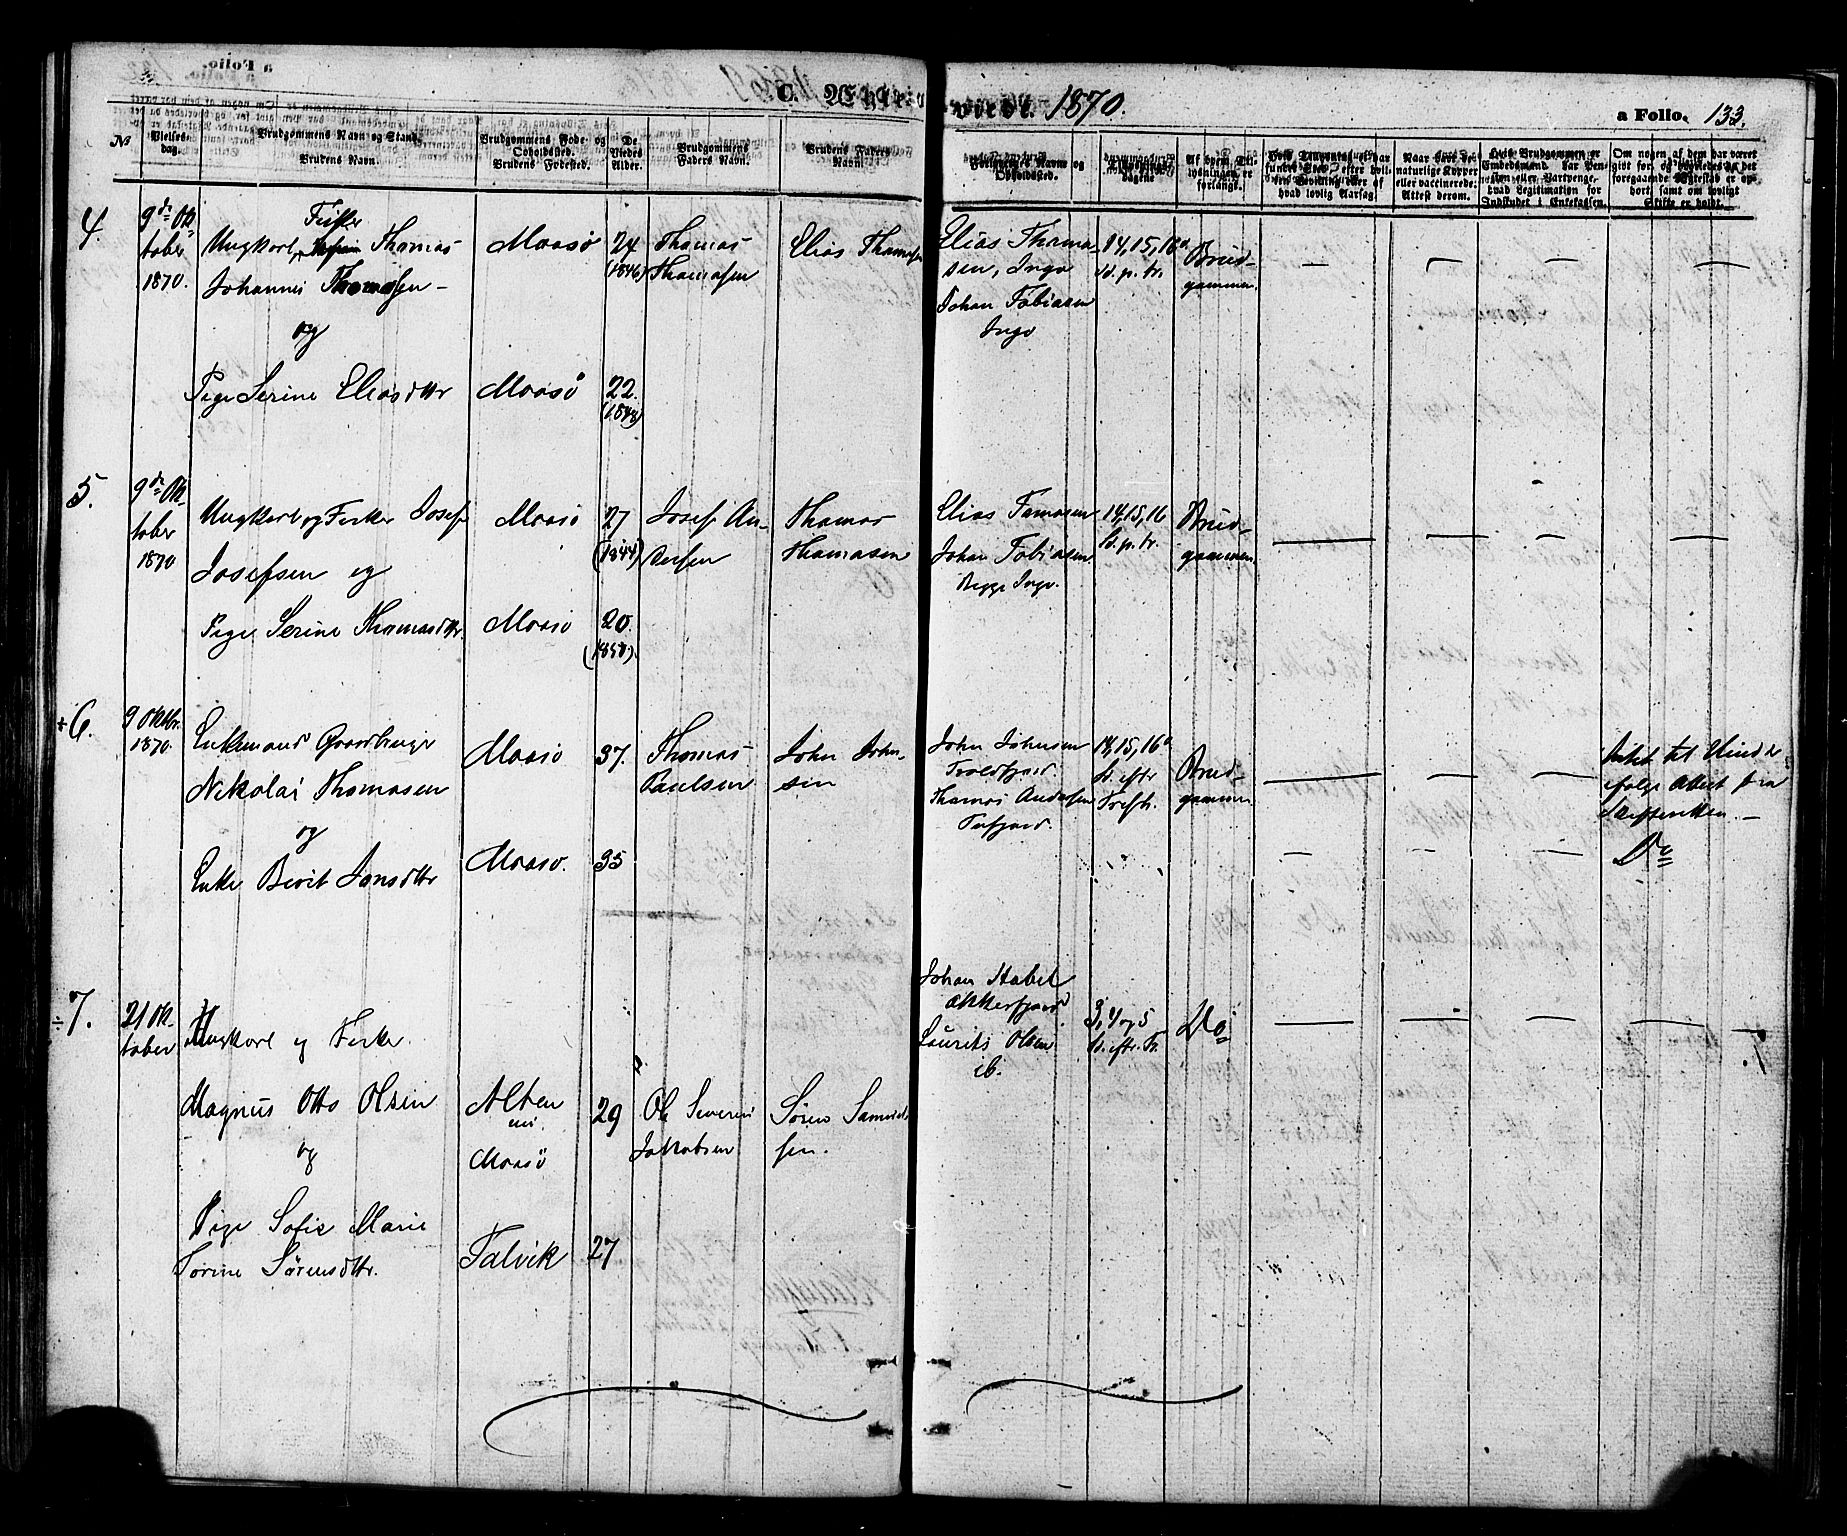 C. Ægte-
viede. 1870.
a Folio. 133.
№
Vielses-
dag.
Brudgommens Navn og Stand.
Brudens Navn.
Brudgommens Føde- og
Opholdssted.
Brudens Fødested.
De
Viedes
Alder.
Brudgommens
Faders Navn.
Brudens Faders
Navn.
Forlovernes Navne og
Opholdssted.
Af hvem Til-
lysningen er
forlangt.
Naar have de
naturlige Kopper
eller vaccinerede.
Attest derom.
4.
9de Ok-
tober
1870.
Fisker
Ungkarl, Thomas
Johannes Thomasen
og
Pige Serine Eliasdttr
Maasö
Maasö
24
(1846)
22.
(1848)
Thomas
Thomasen
Elias Thomasen
Elias Thoma-
sen, Ingø
Johan Tobiasen
Ingø
14, 15, 16de
S. p. tr.
Brud-
gommen.
5.
9de Ok-
tober
1870
Ungkarl og Fisker Josef
Josefsen og
Pige Serine Thomasdttr.
Maasö
Maasö
27
(1844)
20.
(1850).
Josef An-
dersen
Thomas
Thomasen
Elias Tomasen
Johan Tobiasen
Begge Ingø.
14, 15, 16
S. p. tr.
Brud-
gommen.
÷6.
9 Oktbr.
1870.
Enkemand Gaardbruger
Nikolai Thomasen
og
Enke Berit Jonsdttr
Maasö
Maasö.
37.
35
Thomas
Paulsen
John John-
sen
John Johnsen
Troldfjord.
Thomas Andersen
Tufjord.
14, 15, 16de
S. eftr
Trefh.
Brud-
gommen
Intet til Hinder
ifølge Attest fra
Skifteretten. —
Do
÷7.
21 Ok-
tober
Ungkarl og Fisker.
Magnus Otto Olsen
og
Pige Sofie Marie
Torine Sörensdttr.
Alten
nu
Maasö
Talvik
29
27
Ole Severin
Jakobsen
Sören Samuel-
sen.
Johan Stabel
Akkarfjord
Laurits Olsen
ib.
3, 4 og 5
S. eftr. Tr.
Do